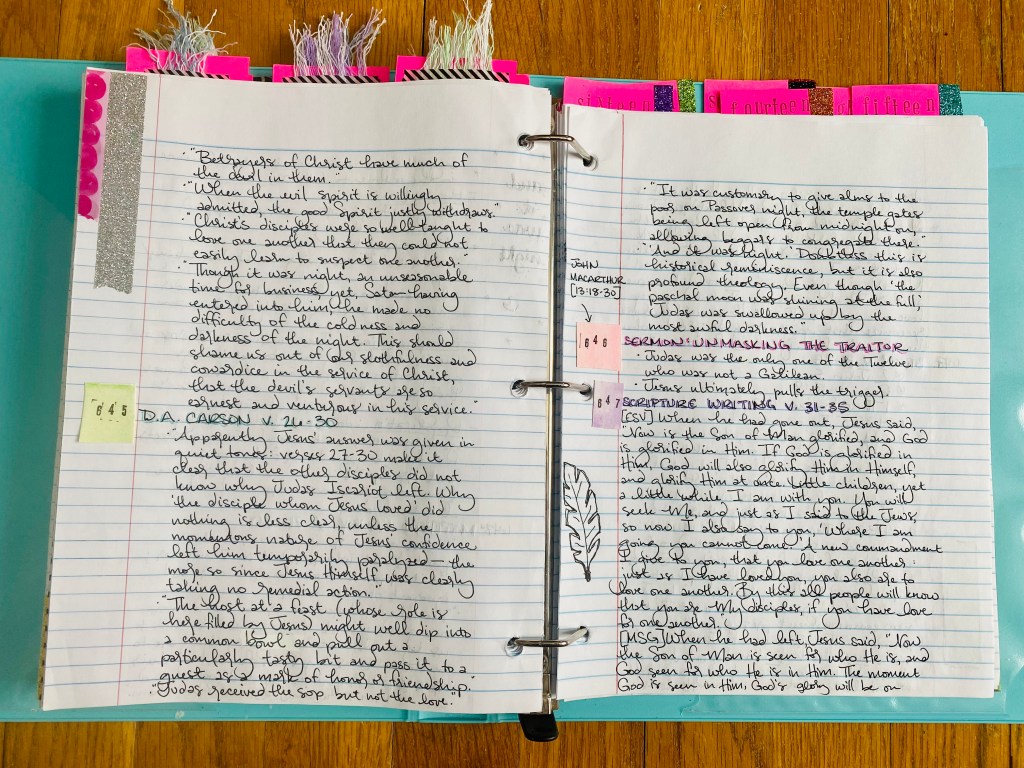 sixteen
fourteen
fifteen
· "Betrayers of Christ have much of
the devil in them."
· "When the evil spirit is willingly
admitted, the good spirit justly withdraws."
· "Christ's disciples were so well taught to
love one another that they could not
easily learn to suspect one another."
· "Though it was night, an unseasonable
time for business, yet, Satan having
entered into him, he made no
difficulty of the coldness and
darkness of the night. This should
shame us out of our slothfulness and
cowardice in the service of Christ,
that the devil's servants are so
earnest and venturous in his service."
645
D.A. CARSON V. 24-30
· "Apparently Jesus' answer was given in
quiet tones: verses 27-30 make it
clear that the other disciples did not
know why Judas Iscariot left. Why
'the disciple whom Jesus loved' did
nothing is less clear, unless the
momentous nature of Jesus' confidence
left him temporarily paralyzed — the
more so since Jesus Himself was clearly
taking no remedial action."
· "The host at a feast (whose role is
here filled by Jesus) might well dip into
a common bowl and pull out a
particularly tasty bit and pass it to a
guest as a mark of honor or friendship."
· "Judas received the sop but not the love."
· "It was customary to give alms to the
poor on Passover night, the temple gates
being left open from midnight on,
allowing beggars to congregate there."
· "And it was night.' Doubtless this is
historical reminiscence, but it is also
profound theology. Even though 'the
paschal moon was shining at the full,'
Judas was swallowed up by the
most awful darkness."
JOHN
MACARTHUR
[13:18-30]
646
SERMON: UNMASKING THE TRAITOR
· Judas was the only one of the Twelve
who was not a Galilean.
· Jesus ultimately pulls the trigger.
647
SCRIPTURE WRITING V. 31-35
[ESV] When he had gone out, Jesus said,
"Now is the Son of Man glorified, and God
is glorified in Him. If God is glorified in
Him, God will also glorify Him in Himself,
and glorify Him at once. Little children, yet
a little while I am with you. You will
seek Me, and just as I said to the Jews,
so now I also say to you, 'Where I am
going you cannot come.' A new commandment
I give to you, that you love one another:
just as I have loved you, you also are to
love one another. By this all people will know
that you are My disciples, if you have love
for one another."
[MSG] When he had left Jesus said, "Now
the Son of Man is seen for who He is, and
God seen for who He is in Him. The moment
God is seen in Him, God's glory will be on